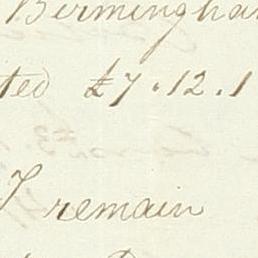 Birmingha
ted £7.12.1
I remain